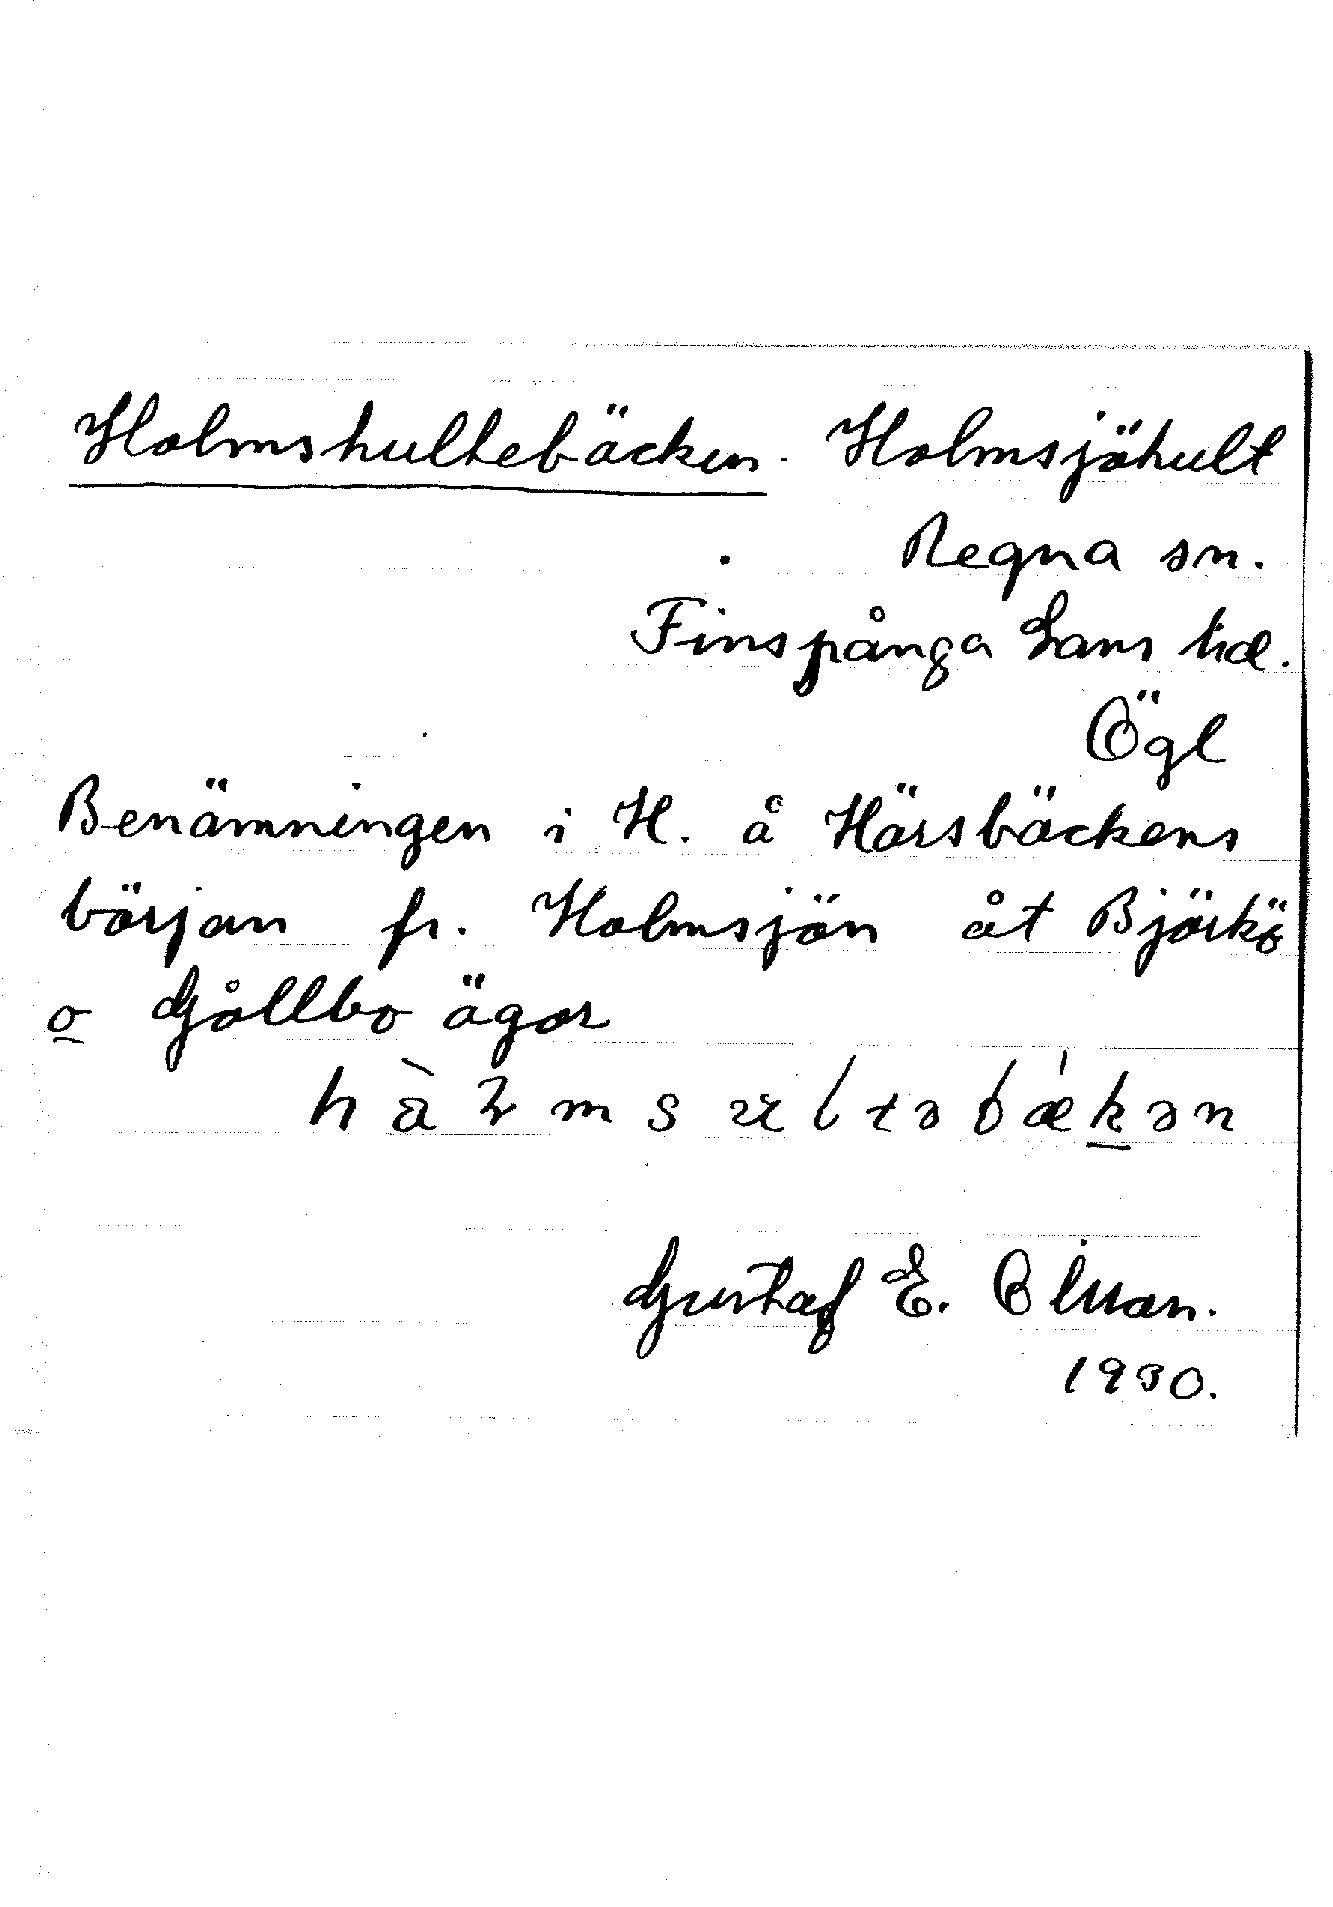 Holmshultebäcken. Holmsjöhult
Regna sn.
Finspånga Läns hd.
Ögl
Benämningen i H. å Härsbäckens
början fr. Holmsjön åt Björkö
o Gållbo ägor
Gustaf E. Olsson.
1930.